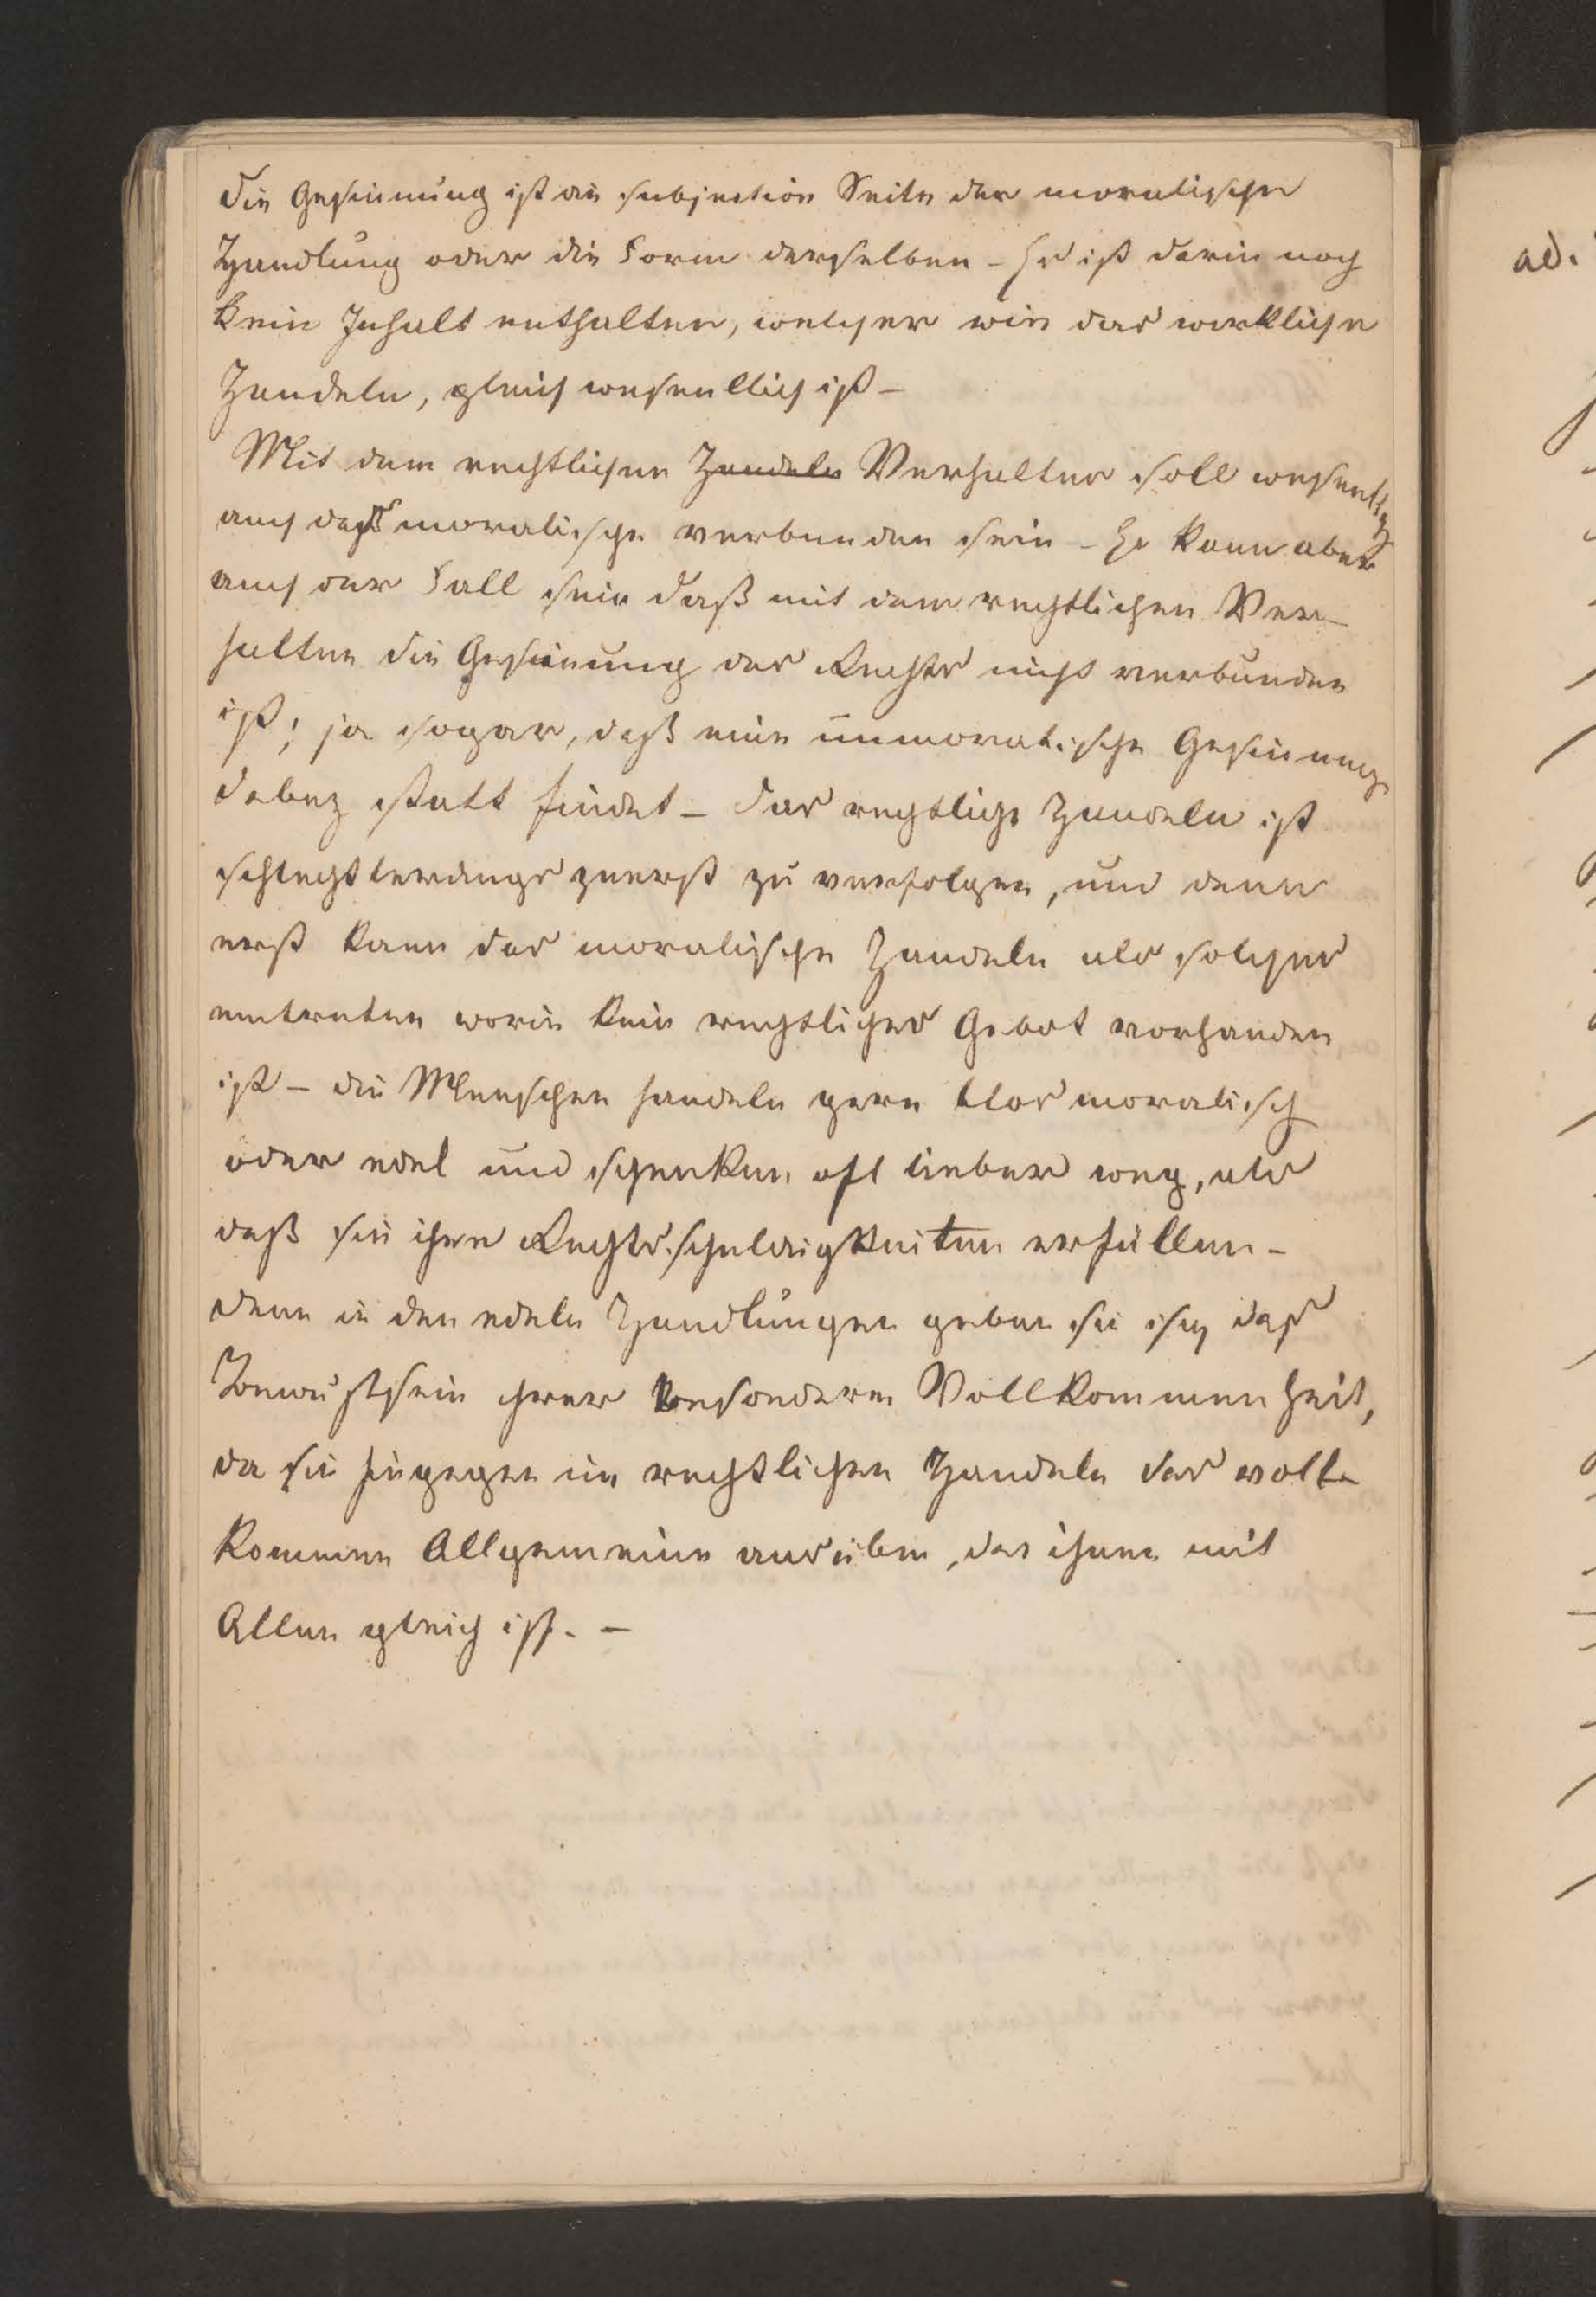 Die Gesinnung ist die subjective Seite der moralischen
Handlung oder die Form derselben – Es ist darin noch
kein Inhalt enthalten, welcher wie das wirkliche
Handeln, gleich wesentlich ist –
Mit dem rechtlichen Handeln Verhalten soll wesentlich
auch das moralische verbunden sein – Es kann aber
auch der Fall sein daß mit dem rechtlichen Ver–
halten die Gesinnung des Rechts nicht verbunden
ist; ja sogar, daß eine unmoralische Gesinnung
dabey statt findet – Das rechtliche Handeln ist
schlechterdings zuerst zu verfolgen, und dann
erst kann das moralische Handeln als solches
eintreten worin kein rechtliches Gebot vorhanden
ist – die Menschen handeln gern blos moralisch
oder edel und schenken oft lieber weg, als
daß sie ihre Rechtsschuldigkeiten erfüllen –
denn in den edeln Handlungen geben sie sich das
Bewußtsein ihrer besonderen Vollkommenheit,
da sie hingegen im rechtlichen Handeln das voll
kommen Allgemeine ausüben, das ihnen mit
Allen gleich ist. –
ad.